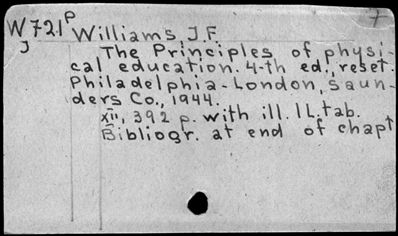 7
W721p Williams J.F.
J
The Principles of physi-
cal education. 4-th ed., reset.
Philadelphia-London, Saun-
ders Co., 1944.
XII, 392 p. with ill. 1 L. tab.
Bibliogr. at end of chapt